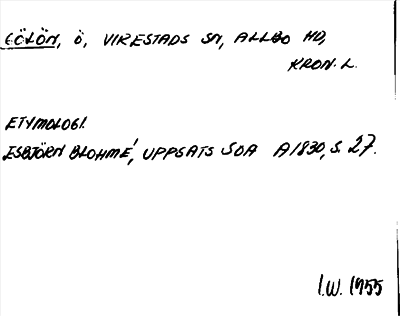 GÖLÖN, Ö, VIRESTADS SN, ALLBO HD,
KRON. L.
ETYMOLOGI.
ESBJÖRN BLOHMÉ, UPPSATS SOA A1830, S. 27.
I.W. 1955